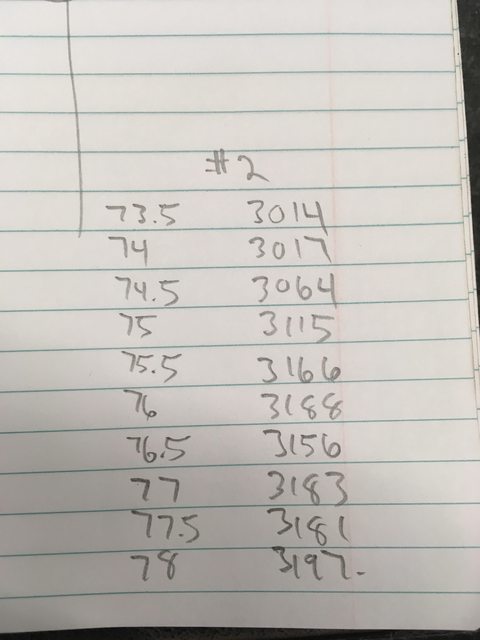 #2
73.5 3014
74 3017
74.5 3064
75 3115
75.5 3166
76 3188
76.5 3156
77 3183
77.5 3181
78 3197.